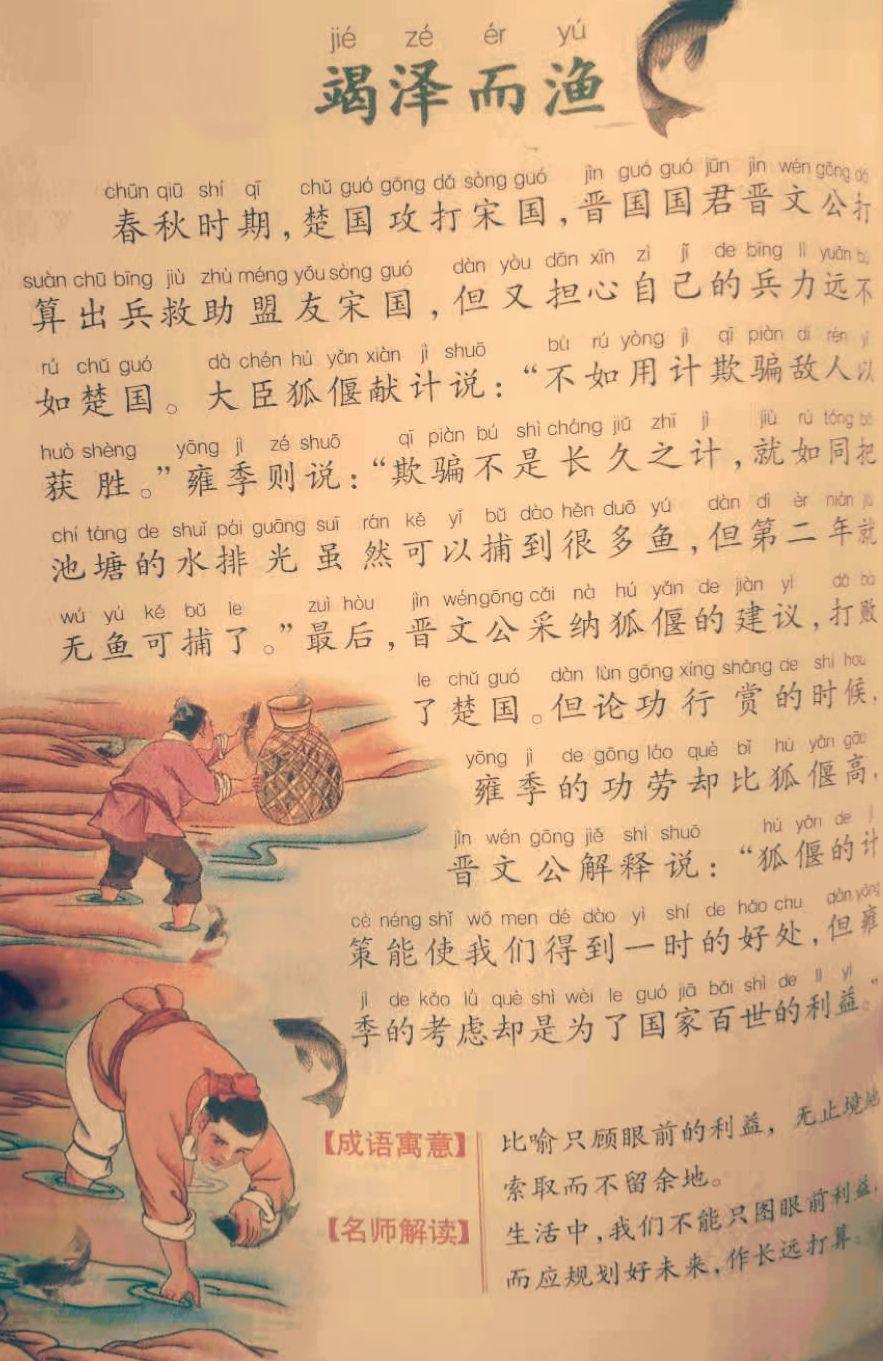 jié zé ér yú
竭泽而渔
chūn qiū shí qī chǔ guó gōng dǎ sòng guó jìn guó guó jūn jìn wén gōng dǎ
春秋时期，楚国攻打宋国，晋国国君晋文公打
suàn chū bīng jiù zhù méng yǒu sòng guó dàn yòu dān xīn zì jǐ de bīng lì yuǎn bù
算出兵救助盟友宋国，但又担心自己的兵力远不
rú chǔ guó dà chén hú yǎn xiàn jì shuō bù rú yòng jì qī piàn dí rén yǐ
如楚国。大臣狐偃献计说：“不如用计欺骗敌人以
huò shèng yōng jì zé shuō qī piàn bú shì cháng jiǔ zhī jì jiù rú tóng bǎ
获胜。”雍季则说：“欺骗不是长久之计，就如同把
chí táng de shuǐ pái guāng suī rán kě yǐ bǔ dào hěn duō yú dàn dì èr nián jiù
池塘的水排光虽然可以捕到很多鱼，但第二年就
wú yú kě bǔ le zuì hòu jìn wén gōng cǎi nà hú yǎn de jiàn yì dǎ bài
无鱼可捕了。”最后，晋文公采纳狐偃的建议，打败
le chǔ guó dàn lùn gōng xíng shǎng de shí hou
了楚国。但论功行赏的时候，
yōng jì de gōng láo què bǐ hú yǎn gāo
雍季的功劳却比狐偃高，
jìn wén gōng jiě shì shuō hú yǎn de jì
晋文公解释说：“狐偃的计
cè néng shǐ wǒ men dé dào yì shí de hǎo chu dàn yōng
策能使我们得到一时的好处，但雍
jì de kǎo lǜ què shì wèi le guó jiā bǎi shì de lì yì
季的考虑却是为了国家百世的利益。”
【成语寓意】 比喻只顾眼前的利益，无止境地
索取而不留余地。
【名师解读】 生活中，我们不能只图眼前利益，
而应规划好未来，作长远打算。